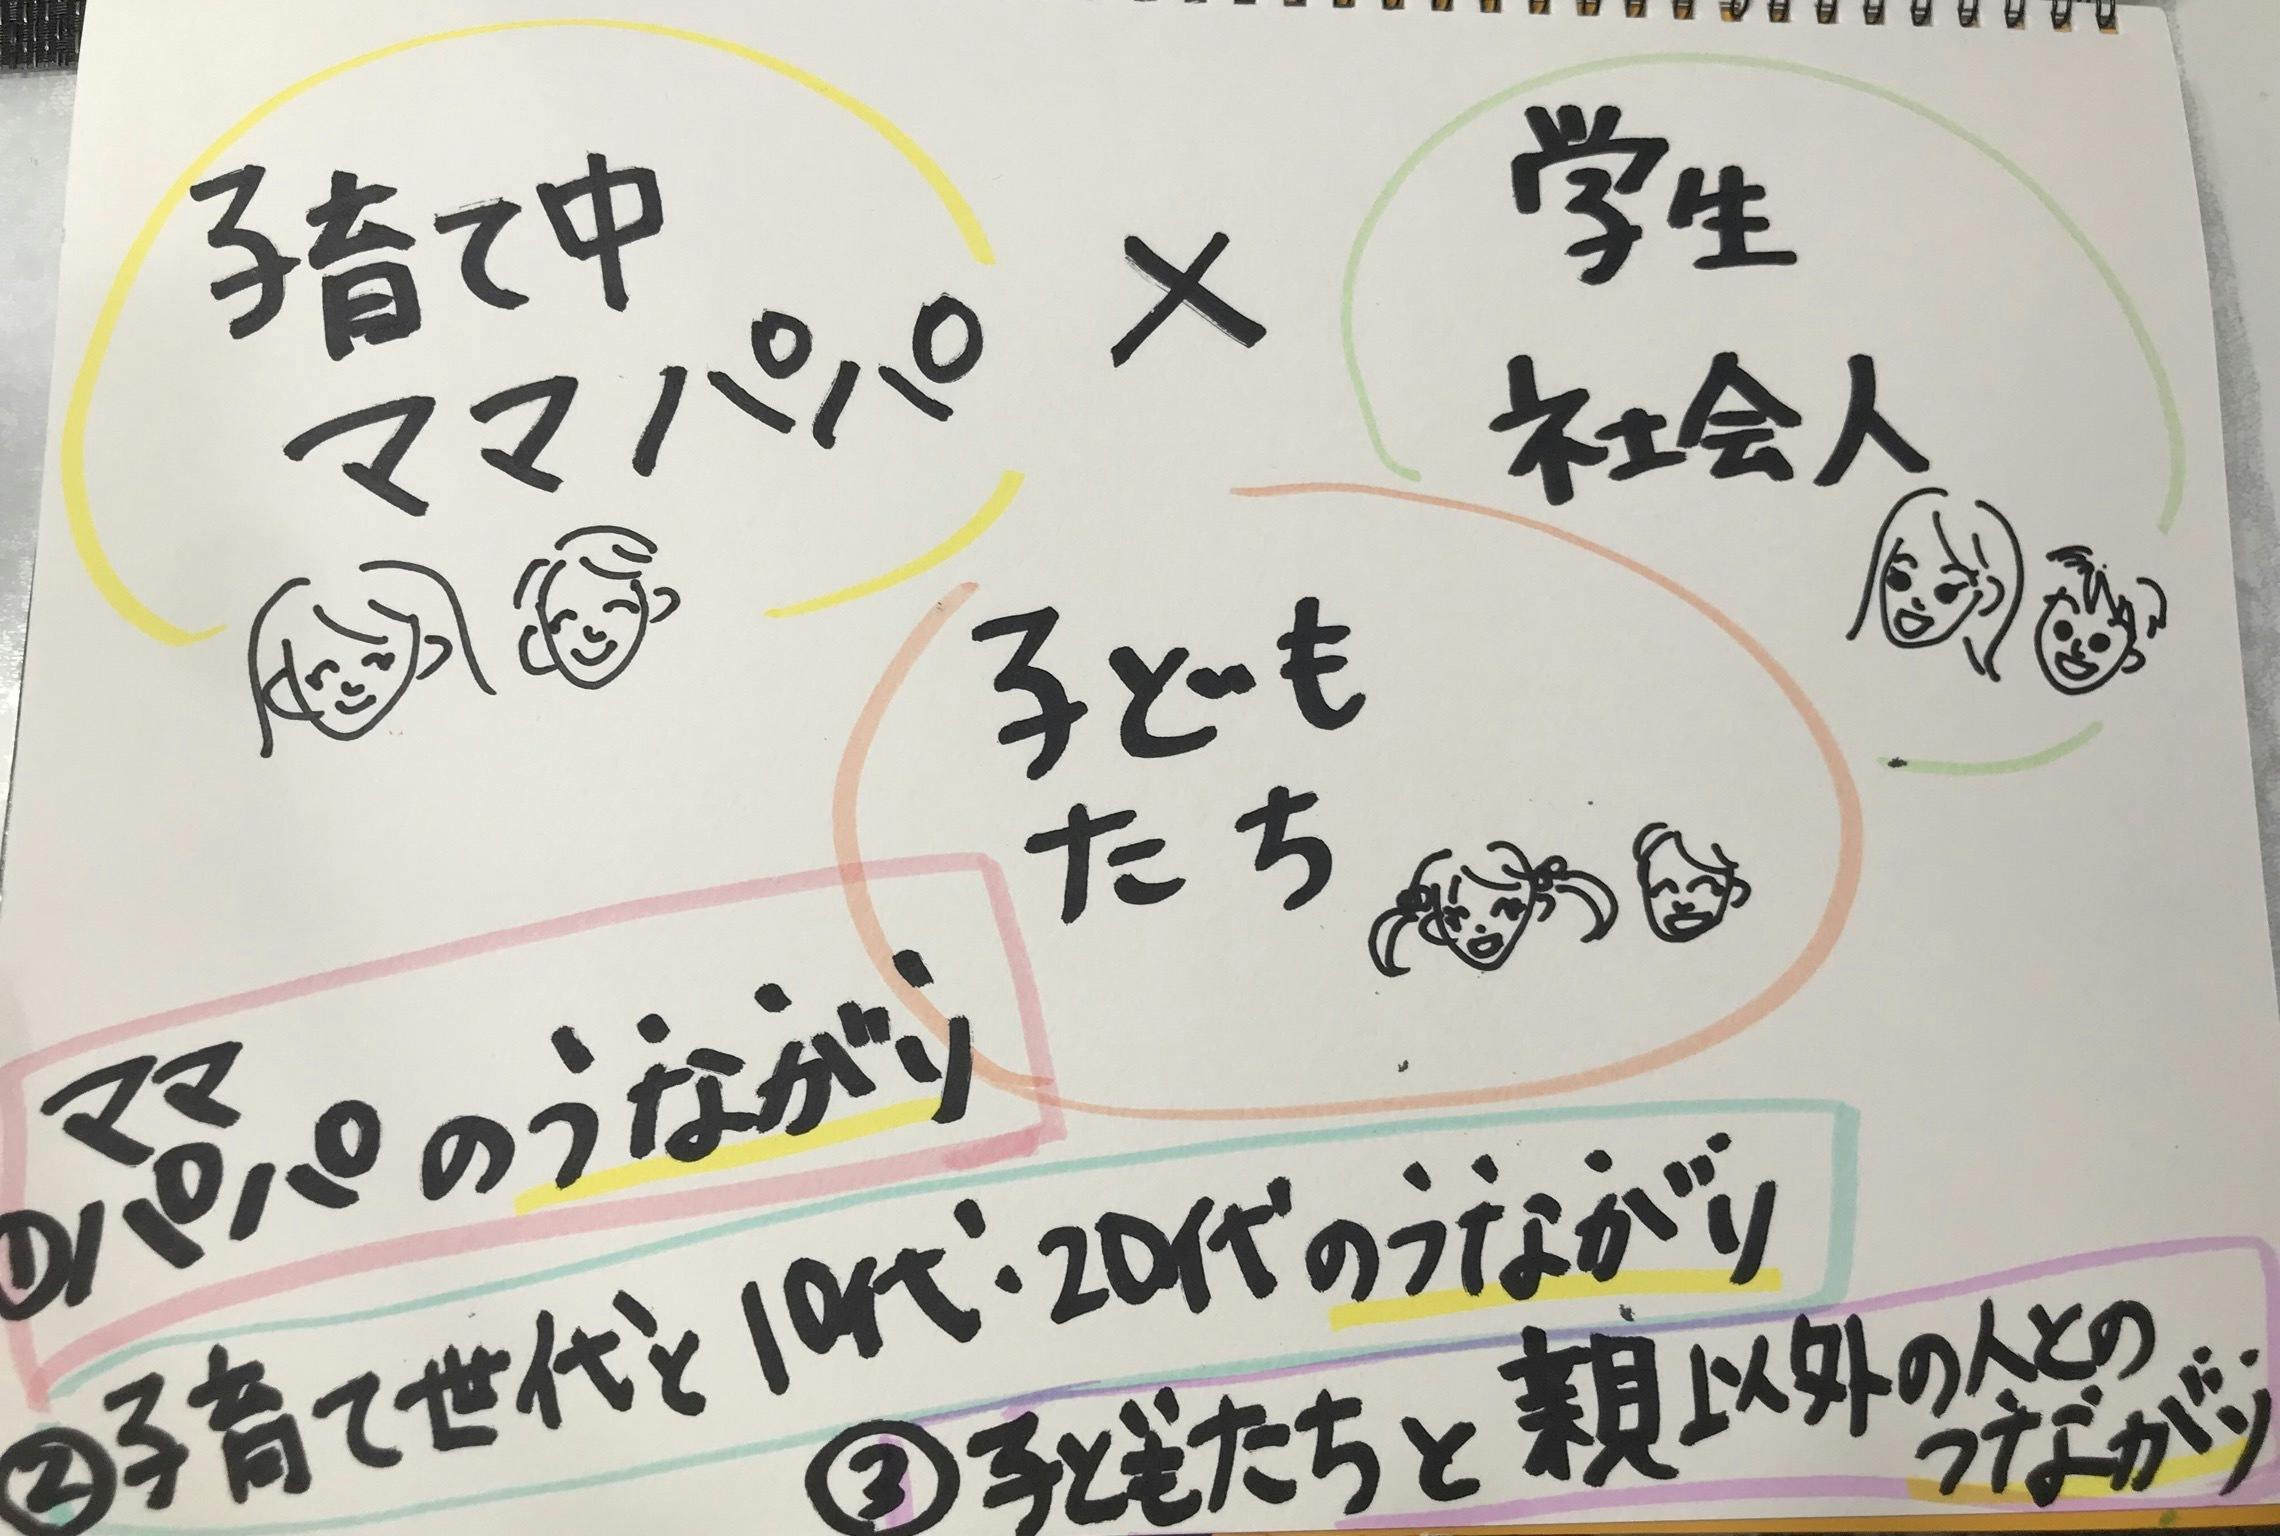 子育て中
ママパパ
×
学生
社会人
子ども
たち
①ママ
パパのつながり
②子育て世代と10代・20代のつながり
③子どもたちと親以外の人との
つながり